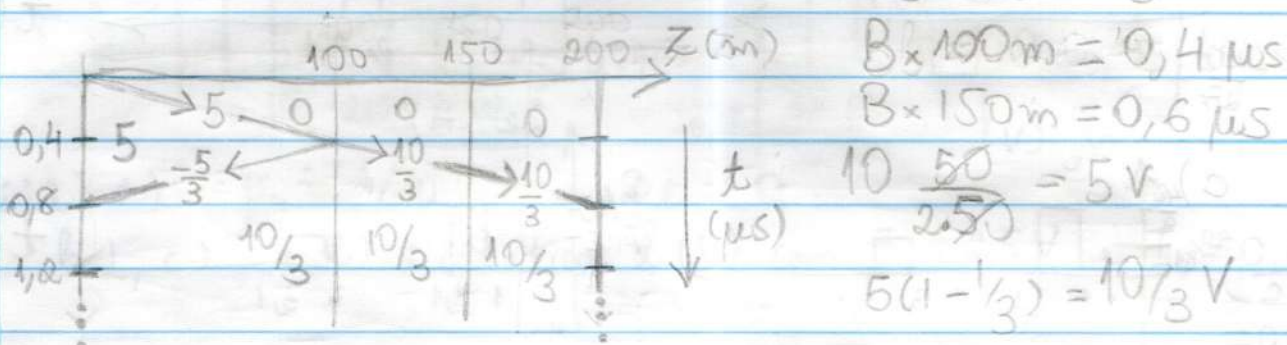 100 150 200 Z(m)
B×100m = 0,4 μs
5 0 0 0
B×150m = 0,6 μs
0,4 5
-5/3 10/3 10/3
t (μs)
10 50/2.50 = 5 V
0,8
10/3 10/3 10/3
1,2
5(1-1/3) = 10/3 V